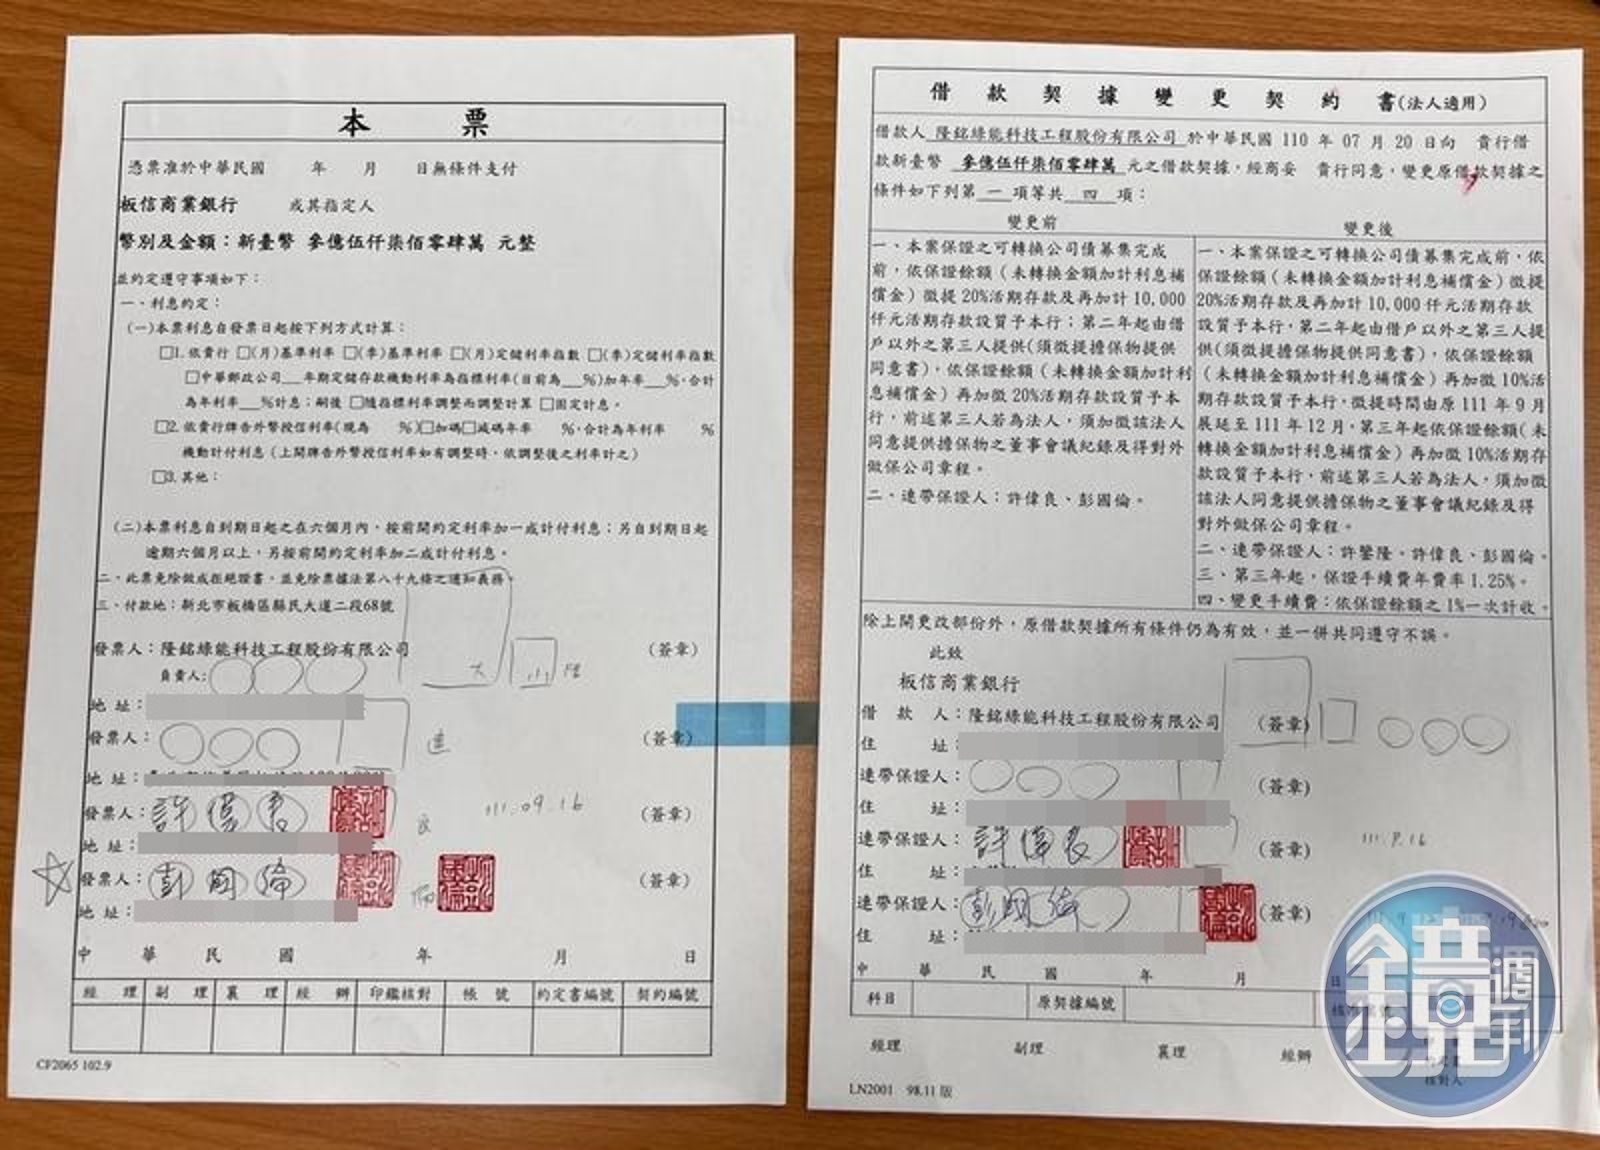 本票
憑票准於中華民國 年 月 日無條件支付
板信商業銀行 或其指定人
幣別及金額：新臺幣 參億伍仟柒佰零肆萬 元整
並約定遵守事項如下：
一、利息約定：
(一)本票利息自發票日起按下列方式計算：
□1.依貴行 □(月)基準利率 □(季)基準利率 □(月)定儲利率指數 □(季)定儲利率指數
□中華郵政公司__年期定儲存款機動利率為指標利率(目前為__%)加年率__%，合計
為年利率__%計息；嗣後 □隨指標利率調整而調整計算 □固定計息。
□2.依貴行牌告外幣授信利率(現為 %)□加碼□減碼年率 %，合計為年利率 %
機動計付利息（上開牌告外幣授信利率如有調整時，依調整後之利率計之）
□3.其他：
(二)本票利息自到期日起之在六個月內，按前開約定利率加一成計付利息；另自到期日起
逾期六個月以上，另按前開約定利率加二成計付利息。
二、此票免除做成拒絕證書，並免除票據法第八十九條之通知義務。
三、付款地：新北市板橋區縣民大道二段68號
發票人：隆銘綠能科技工程股份有限公司 (簽章)
負責人：
大 小 隆
地 址：
發票人： (簽章)
地 址：
發票人：許偉良 良 111.09.16 (簽章)
地 址：
發票人：彭國倫 倫 (簽章)
地 址：
中華民國 年 月 日
經理 副理 襄理 經辦 印鑑核對 帳號 約定書編號 契約編號
CF2065 102.9
借款契據變更契約書(法人適用)
借款人 隆銘綠能科技工程股份有限公司 於中華民國 110 年 07 月 20 日向 貴行借
款新臺幣 參億伍仟柒佰零肆萬 元之借款契據，經商妥 貴行同意，變更原借款契據之
條件如下列第 一 項等共 四 項：
變更前
一、本案保證之可轉換公司債募集完成
前，依保證餘額（未轉換金額加計利息補
償金）徵提 20%活期存款及再加計 10,000
仟元活期存款設質予本行；第二年起由借
戶以外之第三人提供(須徵提擔保物提供
同意書)，依保證餘額（未轉換金額加計利
息補償金）再加徵 20%活期存款設質予本
行，前述第三人若為法人，須加徵該法人
同意提供擔保物之董事會議紀錄及得對外
做保公司章程。
二、連帶保證人：許偉良、彭國倫。
變更後
一、本案保證之可轉換公司債募集完成前，依
保證餘額（未轉換金額加計利息補償金）徵提
20%活期存款及再加計 10,000 仟元活期存款
設質予本行，第二年起由借戶以外之第三人提
供(須徵提擔保物提供同意書)，依保證餘額
（未轉換金額加計利息補償金）再加徵 10%活
期存款設質予本行，徵提時間由原 111 年 9 月
展延至 111 年 12 月，第三年起依保證餘額（未
轉換金額加計利息補償金）再加徵 10%活期存
款設質予本行，前述第三人若為法人，須加徵
該法人同意提供擔保物之董事會議紀錄及得
對外做保公司章程。
二、連帶保證人：許鑒隆、許偉良、彭國倫。
三、第三年起，保證手續費年費率 1.25%。
四、變更手續費：依保證餘額之 1%一次計收。
除上開更改部份外，原借款契據所有條件仍為有效，並一併共同遵守不誤。
此致
板信商業銀行
借款人：隆銘綠能科技工程股份有限公司 (簽章)
住 址：
連帶保證人： (簽章)
住 址：
連帶保證人：許偉良 (簽章) 111.9.16
住 址：
連帶保證人：彭國倫 (簽章)
住 址：
中華民國 年 月 日
科目 原契據編號
經理 副理 襄理 經辦
核對人
LN2001 98.11 版
鏡週刊